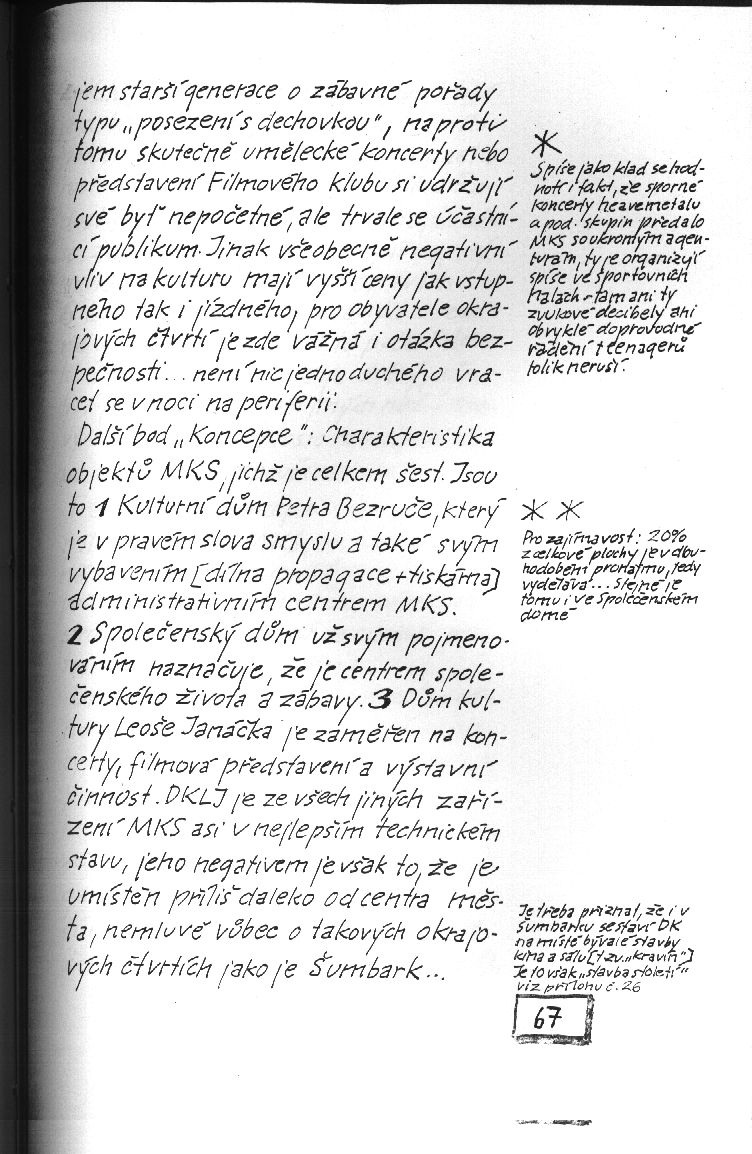 jem starší generace o zábavné pořady
typu „posezení s dechovkou", naproti
tomu skutečně umělecké koncerty nebo
představení Filmového klubu si udržují
své byť nepočetné, ale trvale se účastní-
cí publikum. Jinak všeobecně negativní
vliv na kulturu mají vyšší ceny jak vstup-
ného tak i jízdného, pro obyvatele okra-
jových čtvrtí je zde vážná i otázka bez-
pečnosti... není nic jednoduchého vra-
cet se v noci na periferii.
Další bod „Koncepce": Charakteristika
objektů MKS, jichž je celkem šest. Jsou
to 1 Kulturní dům Petra Bezruče, který
je v pravém slova smyslu a také svým
vybavením [dílna propagace + tiskárna]
administrativním centrem MKS.
2 Společenský dům už svým pojmeno-
váním naznačuje, že je centrem spole-
čenského života a zábavy. 3 Dům kul-
tury Leoše Janáčka je zaměřen na kon-
certy, filmová představení a výstavní
činnost. DKLJ je ze všech jiných zaří-
zení MKS asi v nejlepším technickém
stavu, jeho negativem je však to, že je
umístěn příliš daleko od centra měs-
ta, nemluvě vůbec o takových okrajo-
vých čtvrtích jako je Šumbark...
*
Spíše jako klad se hod-
notí i fakt, že sporné
koncerty heavemetalu
a pod. skupin předalo
MKS soukromým agen-
turám, ty je organizují
spíše ve sportovních
halách - tam ani ty
zvukové decibely ani
obvyklé doprovodné
řádění teenagerů
tolik neruší.
* *
Pro zajímavost: 20%
z celkové plochy je v dlou-
hodobém pronájmu, tedy
vydělává... Stejné je
tomu i ve Společenském
domě
Je třeba přiznat, že i v
Šumbarku se staví DK
na místě bývalé stavby
kina a sálu [tzv. „kravín"]
Je to však „stavba století"
viz přílohu č. 26
67